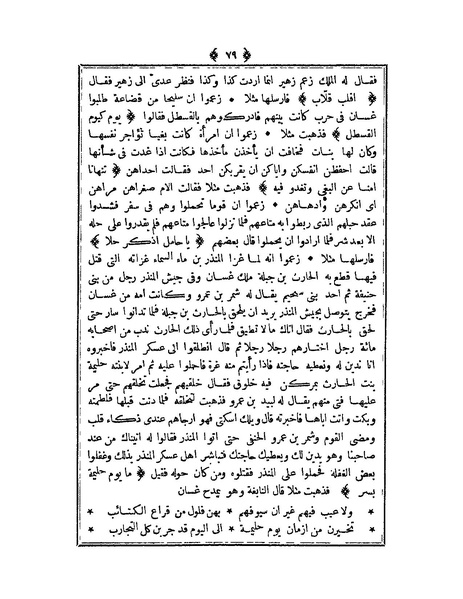 ﴿ ٧٩ ﴾
فقال له الملك زعم زهير انما اردت كذا وكذا فنظر عدى الى زهير فقال
﴿ اقلب قلاب ﴾ فارسلها مثلا * زعموا ان سليحا من قضاعة طلبوا
غسان فى حرب كانت بينهم فادركوهم بالقسطل فقالوا ﴿ يوم كيوم
القسطل ﴾ فذهبت مثلا * زعموا ان امرأة كانت بغيا تؤاجر نفسها
وكان لها بنات فخافت ان يأخذن مأخذها فكانت اذا غدت فى شأنها
قالت احفظن انفسكن واياكن ان يقربكن احد فقالت احداهن ﴿ تنهانا
امنا عن البغى وتغدو فيه ﴾ فذهبت مثلا فقالت الام صغراهن مراهن
اى انكرهن وأدهاهن * زعموا ان قوما تحملوا وهم فى سفر فشدوا
عقد حبلهم الذى ربطوا به متاعهم فلما نزلوا عالجوا متاعهم فلم يقدروا على حله
الا بعد شر فلما ارادوا ان يحملوا قال بعضهم ﴿ يا حامل اذكر حلا ﴾
فارسلها مثلا * زعموا انه لما غزا المنذر بن ماء السماء غزاته التى قتل
فيها قطع به الحارث بن جبلة ملك غسان وفى جيش المنذر رجل من بنى
حنيفة ثم احد بنى سحيم يقال له شمر بن عمرو وكانت امه من غسان
فخرج يتوصل بجيش المنذر يريد ان يلحق بالحارث بن جبلة فلما تدانوا سار حتى
لحق بالحارث فقال اتاك ما لا تطيق فلما رأى ذلك الحارث ندب من اصحابه
مائة رجل اختارهم رجلا رجلا ثم قال انطلقوا الى عسكر المنذر فاخبروه
انا ندين له ونعطيه حاجته فاذا رأيتم منه غرة فاحملوا عليه ثم امر لابنته حليمة
بنت الحارث بمركن فيه خلوق فقال خلقيهم فجعلت تخلقهم حتى مر
عليها فتى منهم يقال له لبيد بن عمرو فذهبت لتخلقه فما دنت قبلها فلطمته
وبكت واتت اباها فاخبرته قال ويلك اسكتى فهو ارجاهم عندى ذكاء قلب
ومضى القوم وشمر بن عمرو الحنفى حتى اتوا المنذر فقالوا له اتيناك من عند
صاحبنا وهو يدين لك ويعطيك حاجتك فتباشر اهل عسكر المنذر بذلك وغفلوا
بعض الغفلة فحملوا على المنذر فقتلوه ومن كان حوله فقيل ﴿ ما يوم حليمة
بسر ﴾ فذهبت مثلا قال النابغة وهو يمدح غسان
* ولا عيب فيهم غير ان سيوفهم * بهن فلول من قراع الكتائب *
* تخيرن من ازمان يوم حليمة * الى اليوم قد جربن كل التجارب *